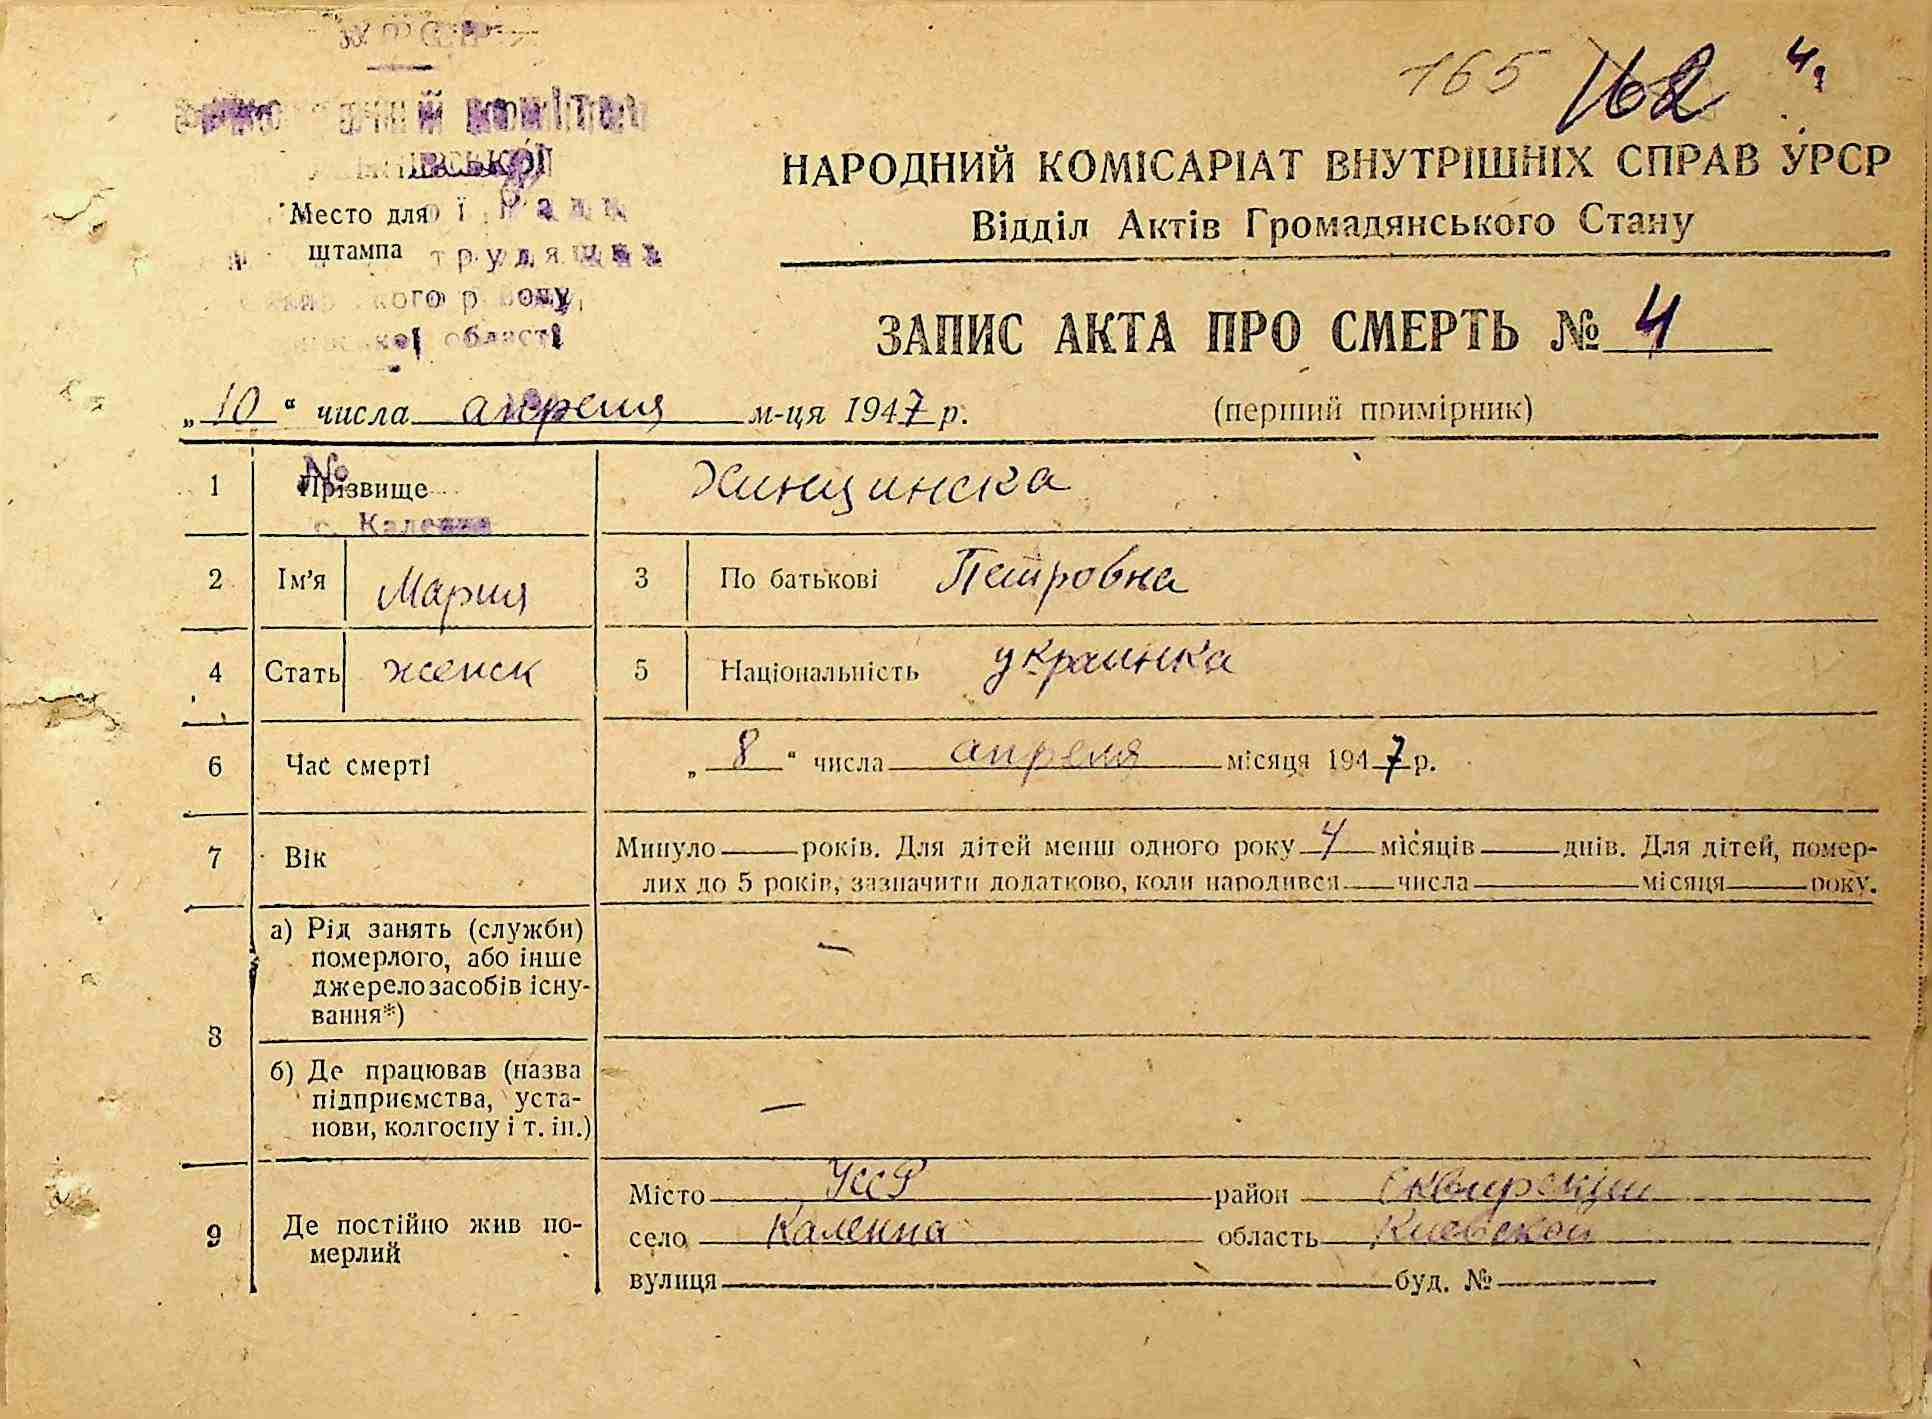 165 162 4
комітет
Ради
Место для
штампа трудящих
району,
області
НАРОДНИЙ КОМІСАРІАТ ВНУТРІШНІХ СПРАВ УРСР
Відділ Актів Громадянського Стану
ЗАПИС АКТА ПРО СМЕРТЬ № 4
„10“ числа апреля м-ця 1947 р.
(перший примірник)
№
1 Прізвище Хинщинска
с. Каленна
2 Ім'я Мария 3 По батькові Петровна
4 Стать женск 5 Національність украинка
6 Час смерті „8“ числа апреля місяця 1947 р.
7 Вік Минуло років. Для дітей менш одного року 4 місяців днів. Для дітей, помер-
лих до 5 років, зазначити додатково, коли народився числа місяця року.
8 а) Рід занять (служби) —
померлого, або інше
джерело засобів існу-
вання*)
б) Де працював (назва —
підприємства, уста-
нови, колгоспу і т. ін.)
9 Де постійно жив по-
мерлий
Місто УССР район Сквирский
село Каленна область Киевской
вулиця буд. №